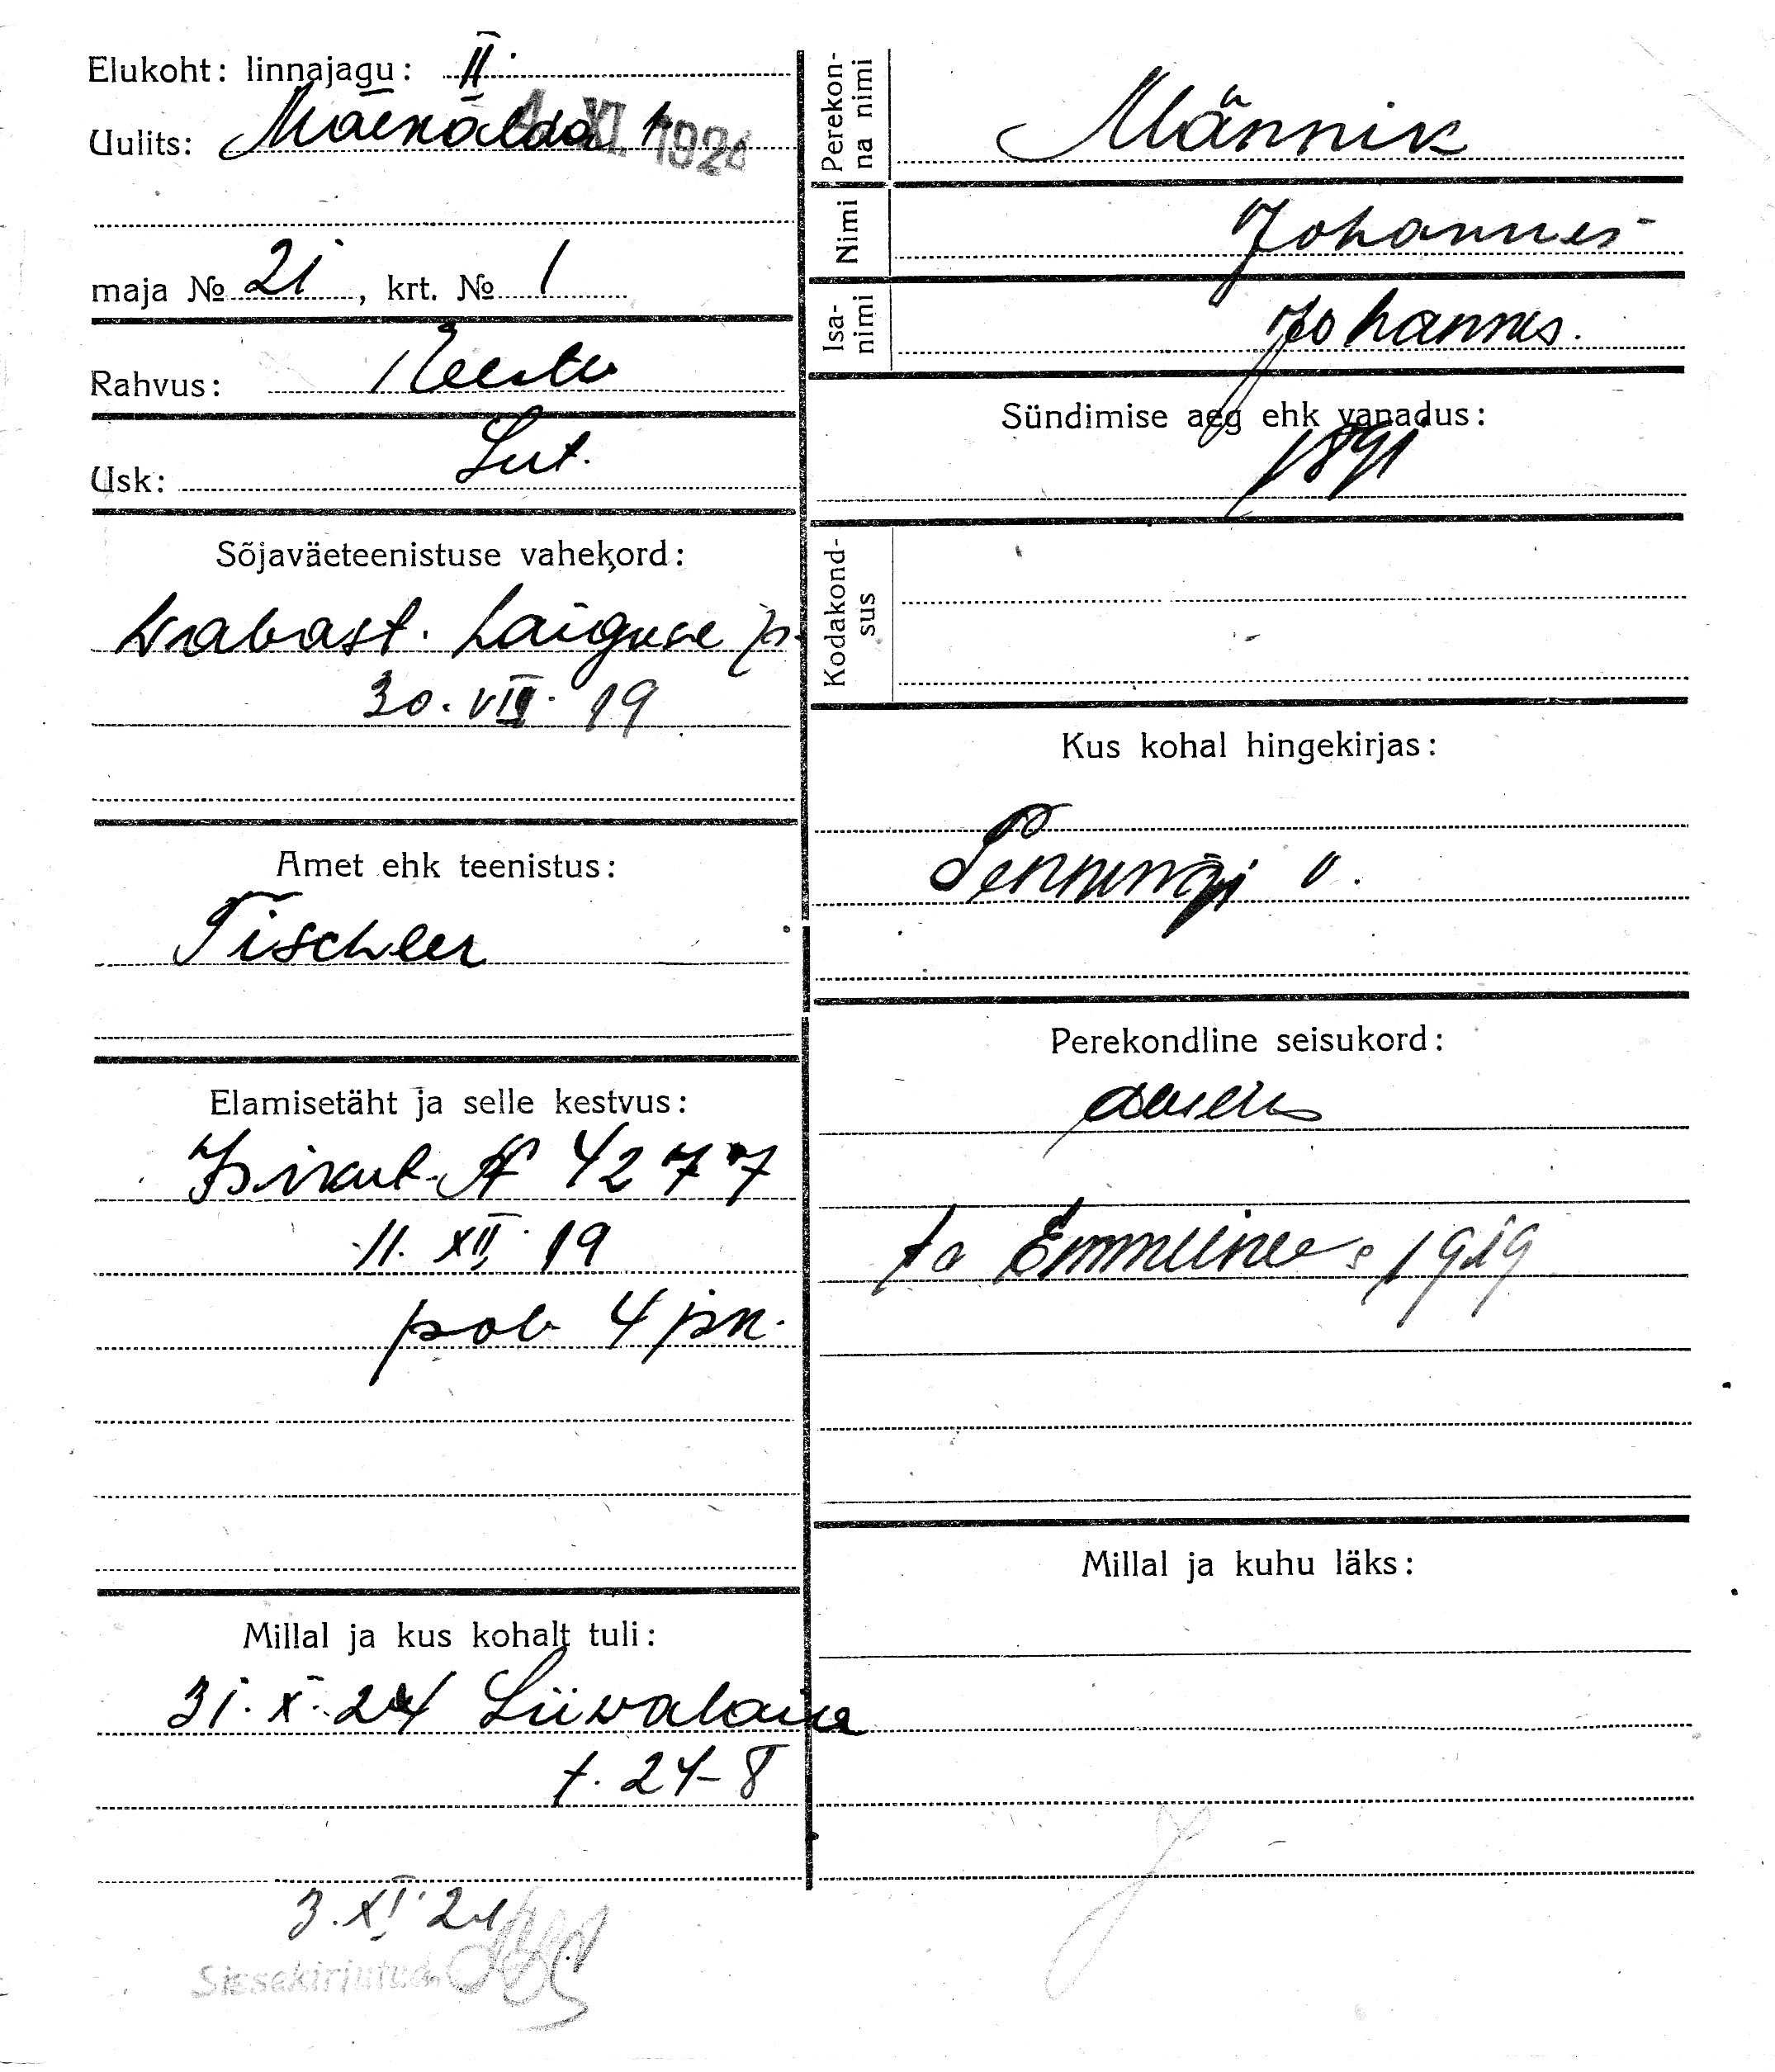 Elukoht: linnajagu: II.
Uulits:
4. XI. 1924
maja № 21, krt. № 1
Rahvus: Eesti
Usk: Lut.
Sõjaväeteenistuse vahekord:
wabast. haiguse p.
30. VII. 19
Amet ehk teenistus:
Tischler
Elamisetäht ja selle kestvus:
Isikut. № 4277
11. XII. 19
pol. 4 jsk.
Millal ja kus kohalt tuli:
31. X. 24 Liiwalaia
t. 24-8
3. XI. 24
Sissekirjutud
Perekonna nimi
Männik
Nimi
Johannes
Isanimi
Johannes.
Sündimise aeg ehk vanadus:
1891
Kodakondsus
Kus kohal hingekirjas:
Penningi v.
Perekondline seisukord:
abielus
Emmeline s. 1919
Millal ja kuhu läks: